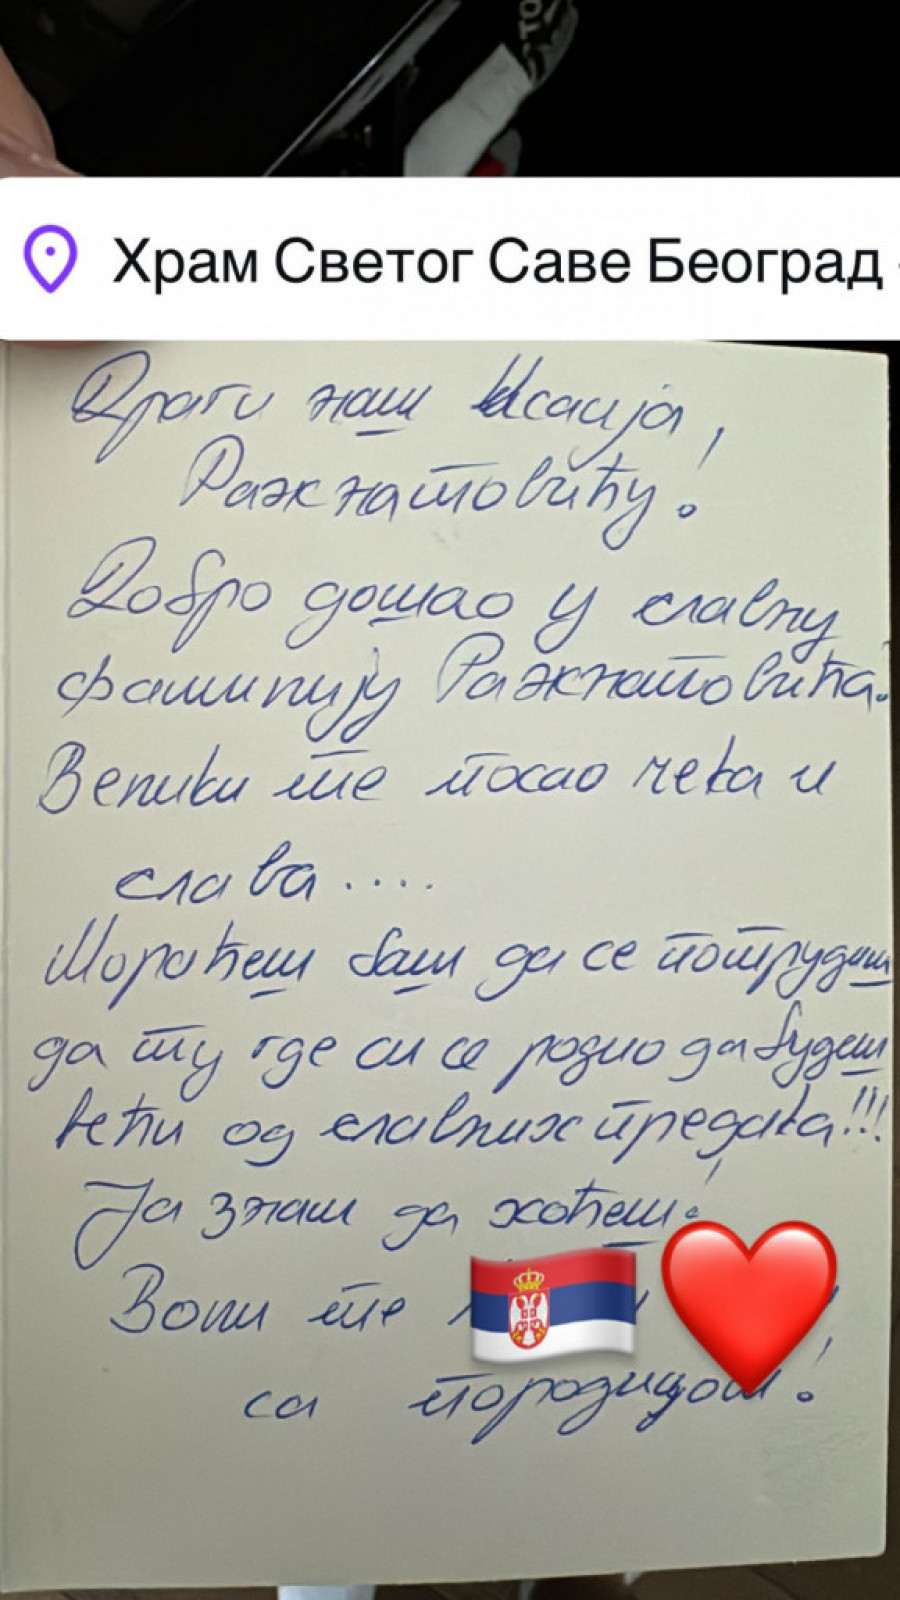 Храм Светог Саве Београд
Драги наш Исаија,
Ражнатовићу!
Добро дошао у славну
фамилију Ражнатовића.
Велики те посао чека и
слава....
Мораћеш баш да се потрудиш
да ту где си се родио да будеш
већи од славних предака!!!
Ја знам да хоћеш!
Воли те
са породицом!